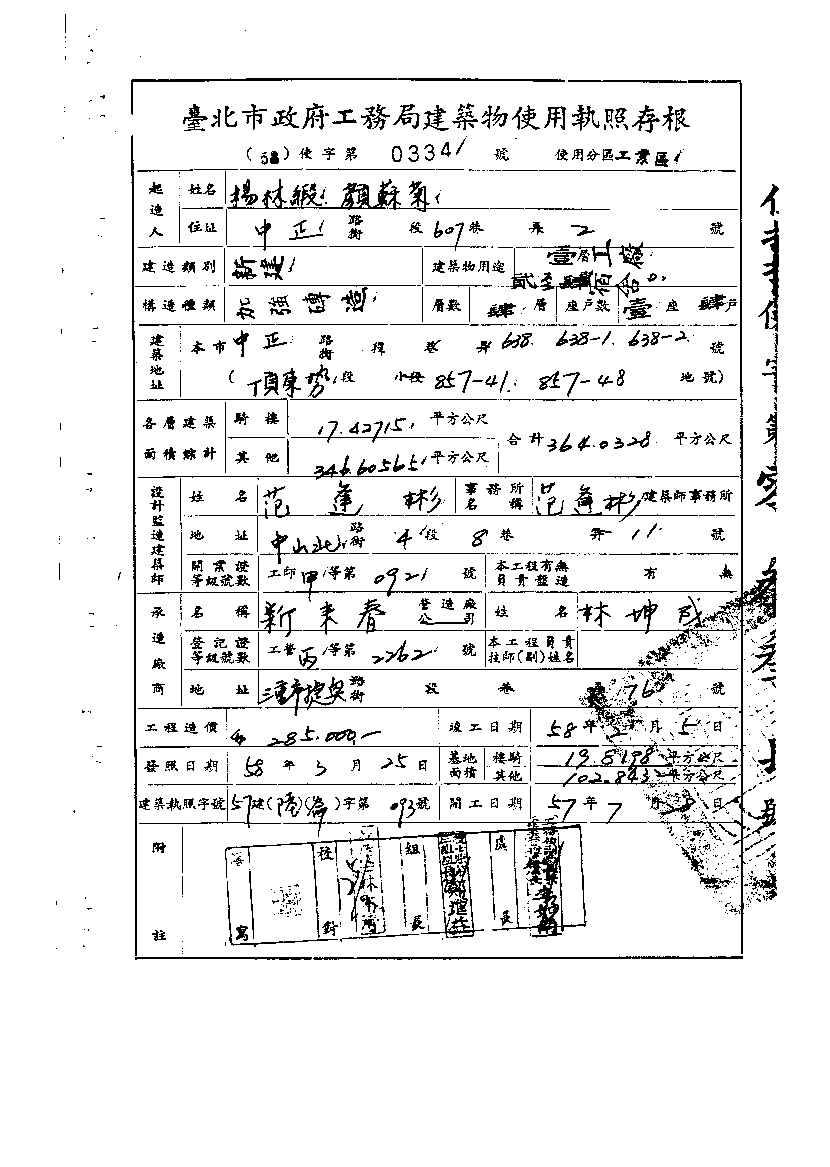 臺北市政府工務局建築物使用執照存根
(58)使字第 0334 號 使用分區 工業區
起造人 姓名 楊林緞 顏蘇菊
住址 中正 路街 段 607巷 弄 2 號
建造類別 新建 建築物用途 壹層工廠 貳至肆宿舍
構造種類 加強磚造 層數 肆層 座戶數 壹座 肆戶
建築地址 本市 中正 路街 段 巷 弄 638. 638-1. 638-2 號
(頂東勢段 小段 857-41. 857-48 地號)
各層建築面積總計 騎樓 17.42715 平方公尺 合計 364.0328 平方公尺
其他 346.60565 平方公尺
設計監造建築師 姓名 范蓬彬 事務所名稱 范蓬彬 建築師事務所
地址 中山北 路街 4段 8巷 弄 11 號
開業證等級號數 工師甲等第 0921 號 本工程有無負責監造 有 無
承造廠商 名稱 新來春 營造廠公司 姓名 林坤成
登記證等級號數 工營丙等第 2262 號 本工程負責技師(副)姓名
地址 三重市捷安 路街 段 巷 76 號
工程造價 285.000,— 竣工日期 58年2月5日
發照日期 58年3月25日 基地面積 樓騎 19.8198 平方公尺
其他 102.843 平方公尺
建築執照字號 57建(陸)(崙)字第 093號 開工日期 57年7月8日
附註
寫 校對 組長 處長